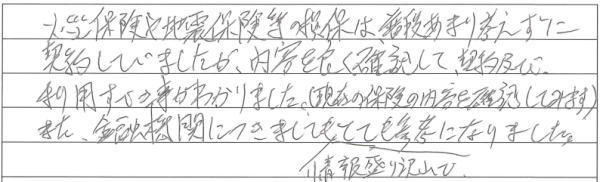 火災保険や地震保険等の損保は、普段あまり考えずに
契約していましたが、内容を良く確認して、契約及び
利用する事がわかりました。(現在の保険の内容を確認してみます)
また、金融機関につきましてもとても参考になりました。
情報盛り沢山で